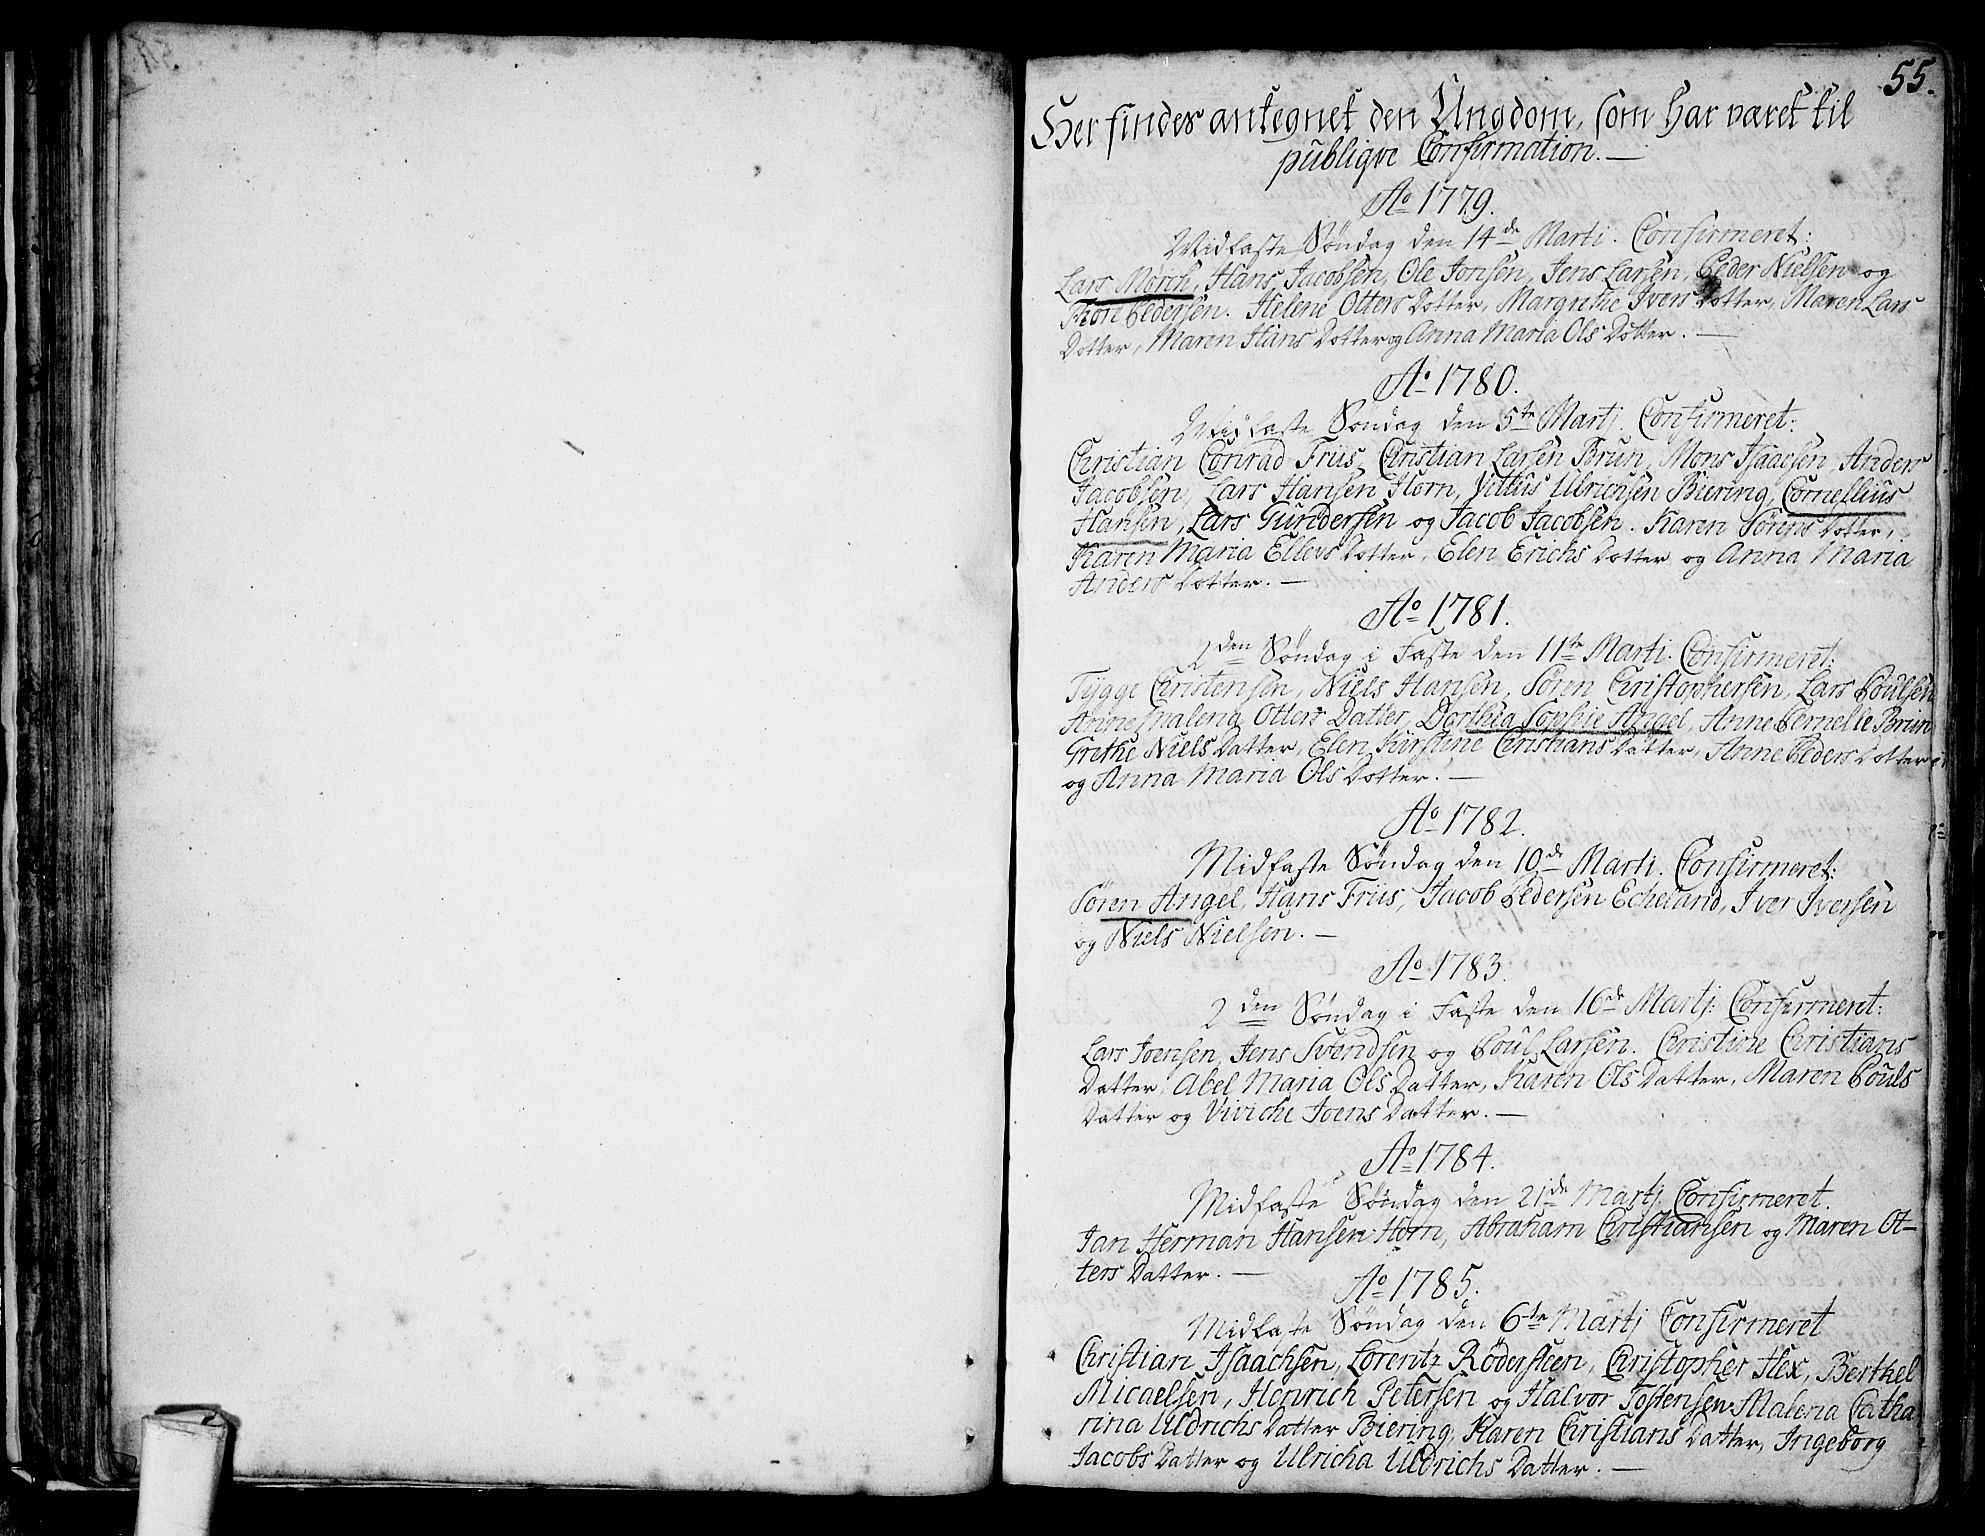 55.
Her findes antegnet den Ungdom, som har været til
publiqve Confirmation. —
Ao 1779.
Midfaste Søndag den 14de Marti. Confirmeret:
Lars Mörch, Hans Jacobsen, Ole Jonsen, Jens Larsen, Peder Nielsen og
Thore Pedersen. Helene Otters Dotter, Margrethe Ivers Dotter, Maren Lars
Dotter, Maren Hans Dotter og Anna Maria Ols Dotter. —
Ao 1780.
Midfaste Søndag den 5te Martj. Confirmeret:
Christian Conrad Friis, Christian Larsen Brun, Mons Isaachsen, Anders
Jacobsen, Lars Hansen Horn, Vittus Ulrichsen Biering, Cornellius
Hansen, Lars Gundersen og Jacob Jacobsen. Karen Sörens Dotter,
Karen Maria Ellevs Dotter, Elen Erichs Dotter og Anna Maria
Anders Dotter. —
Ao 1781.
2den Søndag i Faste den 11te Marti. Confirmeret:
Tygge Christensen, Niels Hansen, Sören Christophersen, Lars Poulsen
Anne Malena Otters Datter, Dorthea Sophie Angel, Anne Pernelle Brun
Grethe Niels Datter, Elen Kirstine Christians Datter, Anne Peders Dotter
og Anna Maria Ols Dotter. —
Ao 1782.
Midfaste Søndag den 10de Marti. Confirmeret:
Sören Angel, Hans Friis, Jacob Pedersen Echeland, Iver Iversen
og Niels Nielsen. —
Ao 1783.
2den Søndag i Faste den 16de Martj: Confermeret:
Lars Joensen, Jens Svendsen og Poul Larsen. Christine Christians
Datter, Abel Maria Ols Datter, Karen Ols Datter, Maren Pouls
Datter og Viviche Joens Datter. —
Ao 1784.
Midfaste Søndag den 21de Martj. Confirmeret.
Jan Herman Hansen Horn, Abraham Christiansen og Maren Ot-
ters Datter. —
Ao 1785.
Midfaste Søndag den 6te Martj Confirmeret
Christian Isaachsen, Lorentz Rödersteen, Christopher Hex, Berthel
Micaelsen, Henrich Petersen og Halvor Tostensen. Malena Catha
rina Uldrichs Datter Biering, Karen Christians Datter, Ingeborg
Jacobs Datter og Ulricha Uldrichs Datter. —